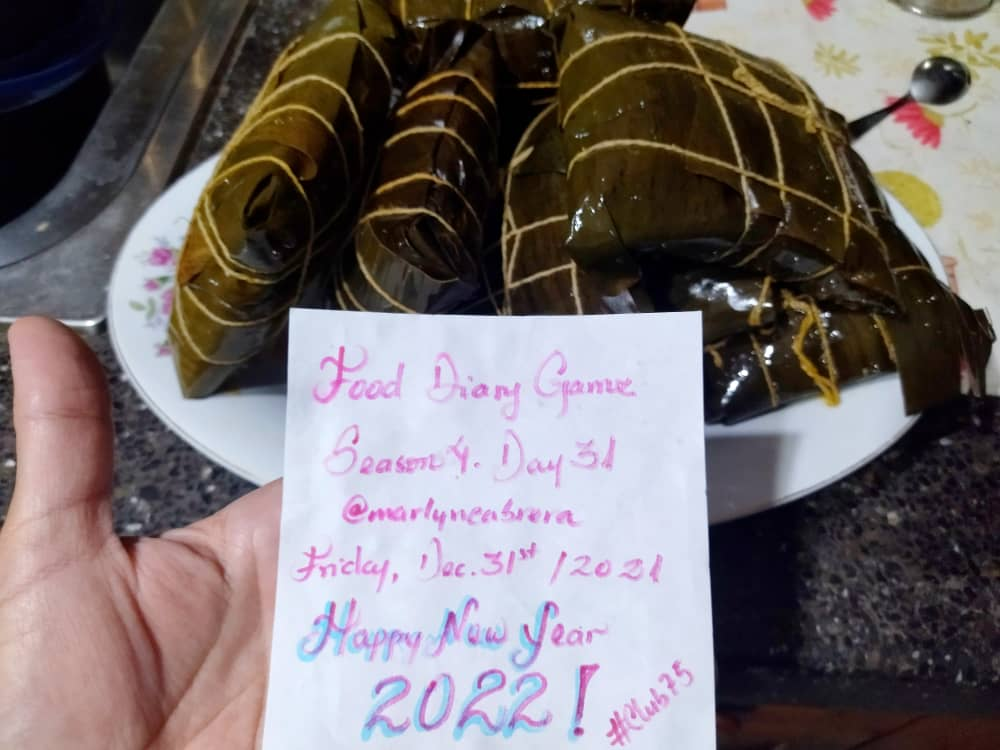 Food Diary Game
Season 4. Day 31
@marlyncabrera
Friday, Dec. 31st / 2021
Happy New Year
2022!
#Club75